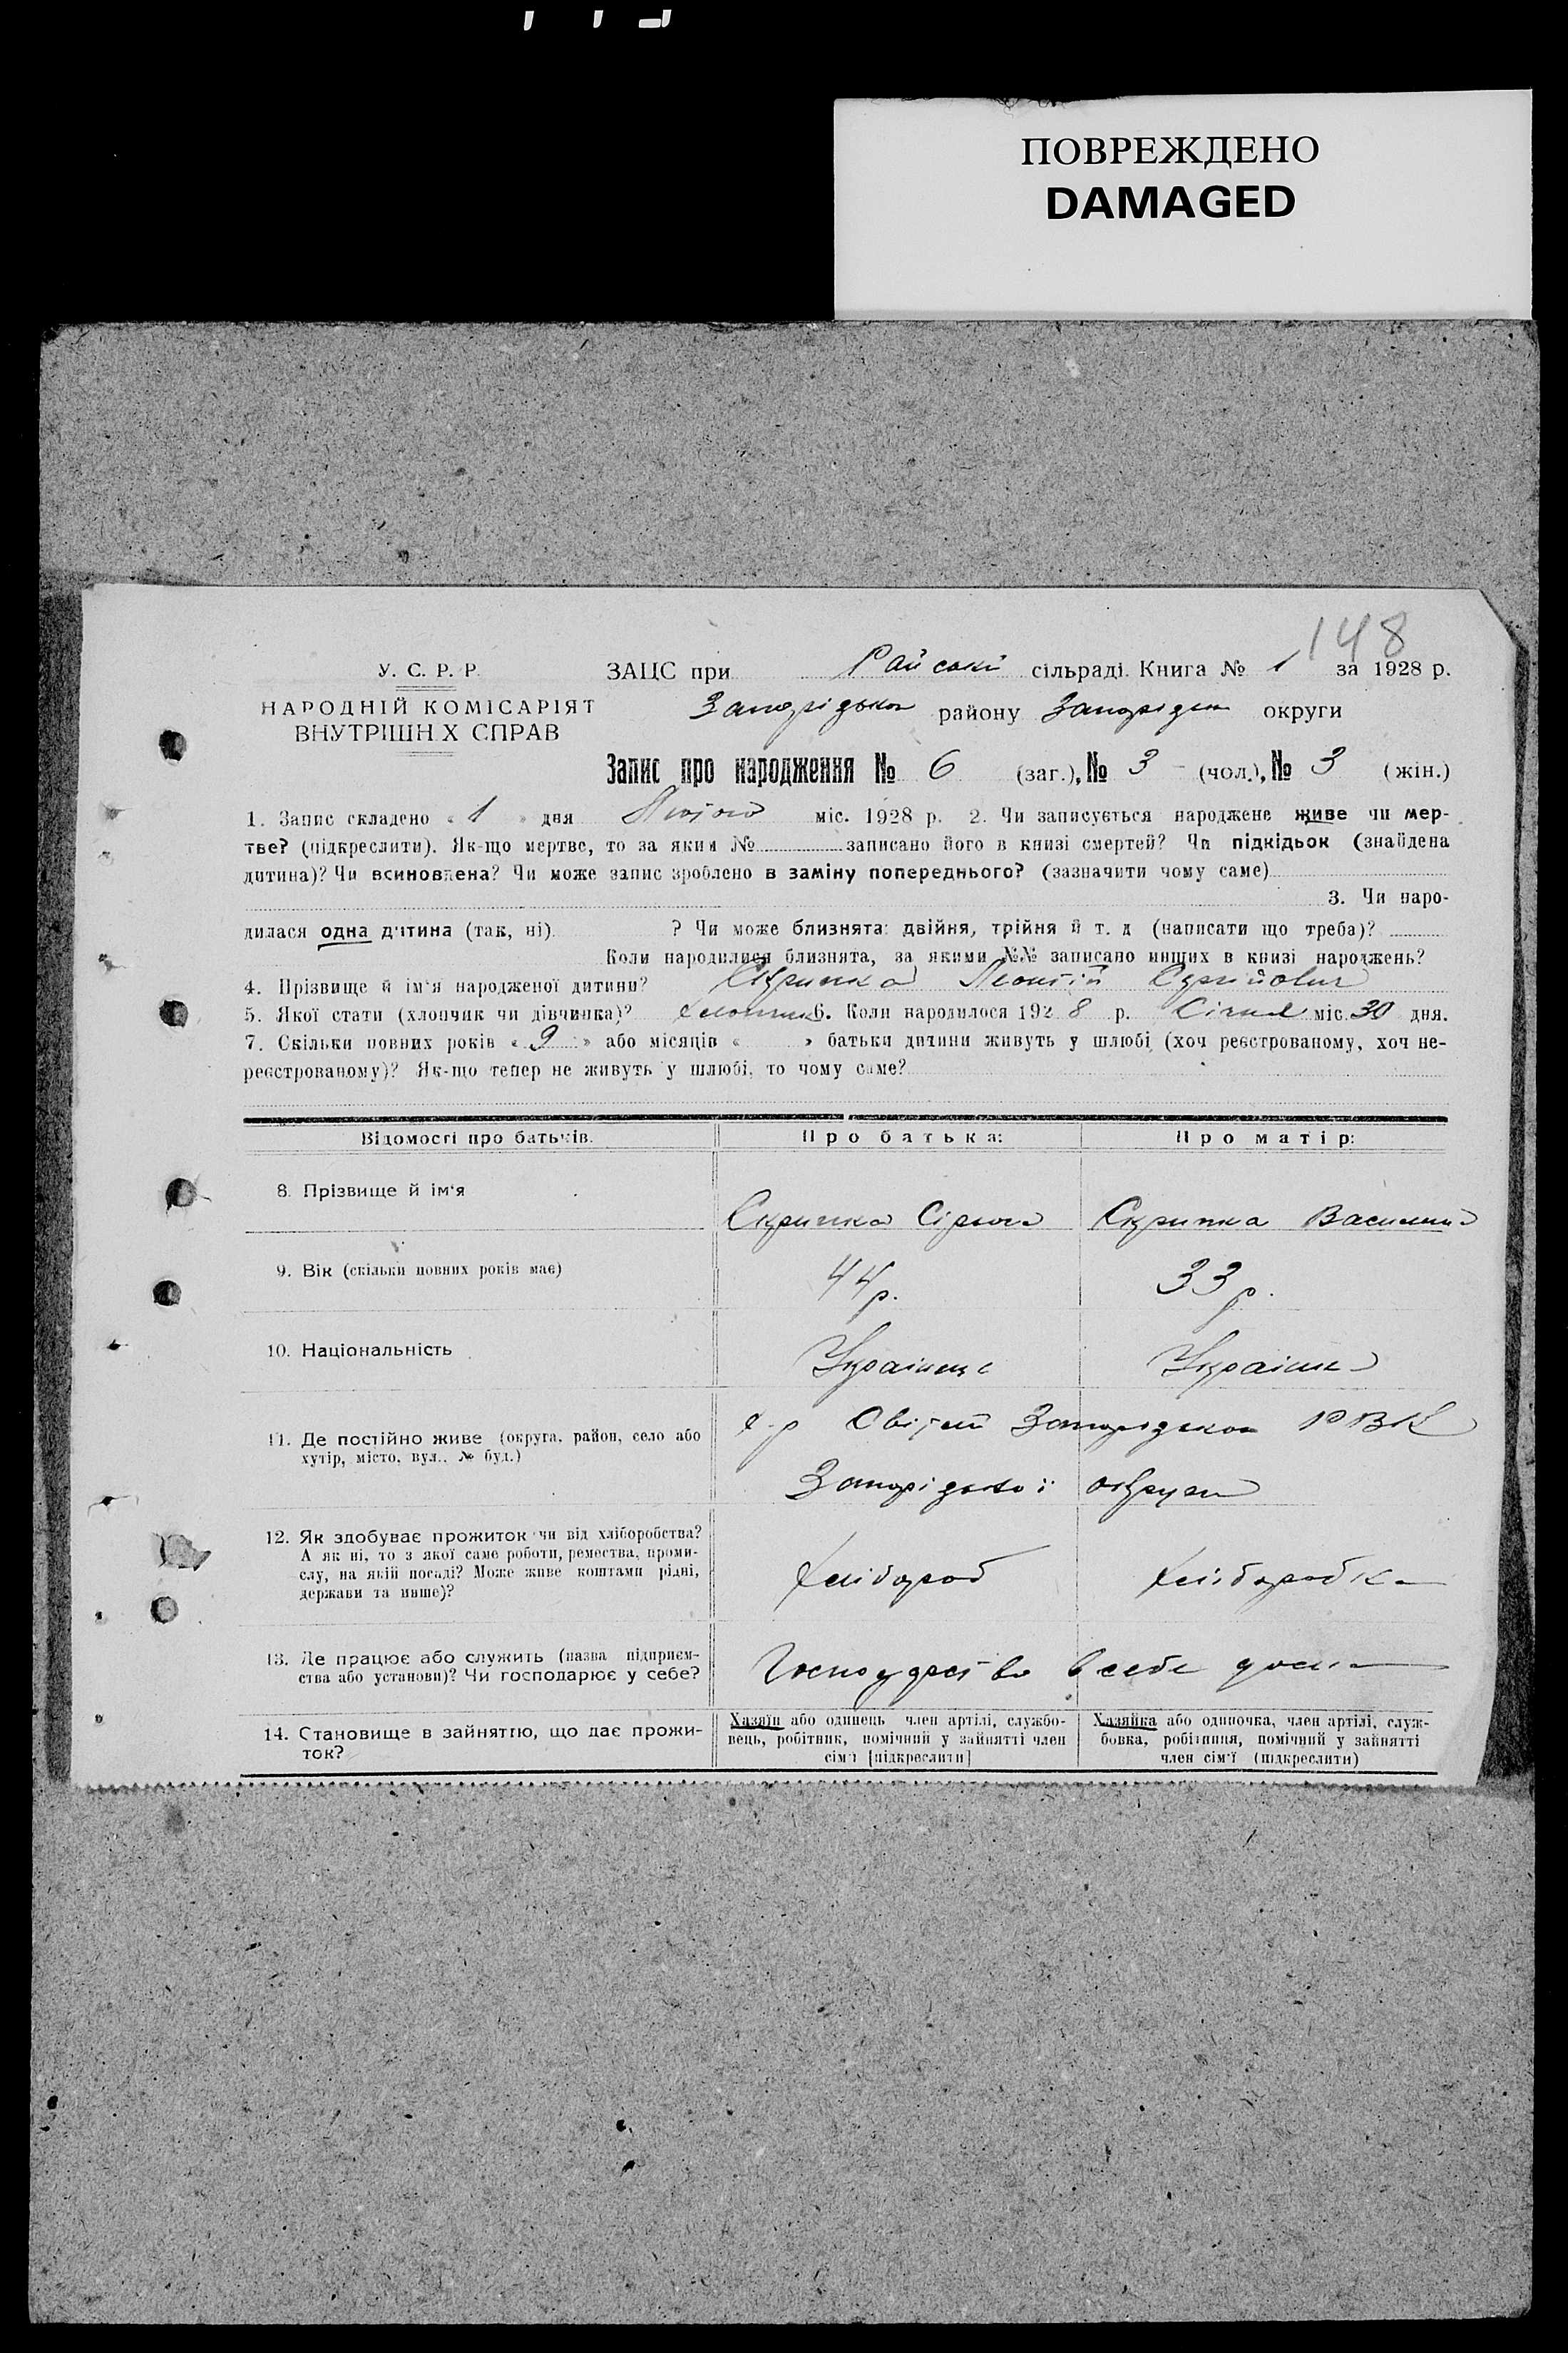 ПОВРЕЖДЕНО
DAMAGED
148
У. С. Р. Р.
НАРОДНІЙ КОМІСАРІЯТ
ВНУТРІШНІХ СПРАВ
ЗАЦС при Райські сільраді. Книга № 1 за 1928 р.
району округи
Запис про народження № 6 (заг.), № 3 (чол.), № 3 (жін.)
1. Запис складено « 1 » дня Лютого міс. 1928 р. 2. Чи записується народжене живе чи мер-
тве? (підкреслити). Як-що мертве, то за яким № записано його в книзі смертей? Чи підкідьок (знайдена
дитина)? Чи всиновлена? Чи може запис зроблено в заміну попереднього? (зазначити чому саме)
3. Чи наро-
дилася одна дитина (так, ні) ? Чи може близнята: двійня, трійня й т. д (написати що треба)?
Коли народилися близнята, за якими №№ записано инших в книзі народжень?
4. Прізвище й ім'я народженої дитини? Скрипка Леонтій Сергійович
5. Якої стати (хлопчик чи дівчинка)? Хлопчик 6. Коли народилося 1928 р. Січня міс. 30 дня.
7. Скільки повних років « 9 » або місяців « » батьки дитини живуть у шлюбі (хоч реєстрованому, хоч не-
реєстрованому)? Як-що тепер не живуть у шлюбі, то чому саме?
Відомості про батьків. Про батька: Про матір:
8. Прізвище й ім'я
Скрипка Скрипка
9. Вік (скільки повних років має)
44 р. 33 р.
10. Національність
Українець Українка
11. Де постійно живе (округа, район, село або
хутір, місто, вул., № буд.)
х-р РВК
Запорізької округи
12. Як здобуває прожиток чи від хліборобства?
А як ні, то з якої саме роботи, ремества, проми-
слу, на якій посаді? Може живе коштами рідні,
держави та инше)?
Хлібороб Хліборобка
13. Де працює або служить (назва підприєм-
ства або установи)? Чи господарює у себе?
в себе дома
14. Становище в зайняттю, що дає прожи-
ток?
Хазяїн або одинець член артілі, службо-
вець, робітник, помічний у зайнятті член
сім'ї [підкреслити]
Хазяйка або одиночка, член артілі, служ-
бовка, робітниця, помічний у зайнятті
член сім'ї (підкреслити)